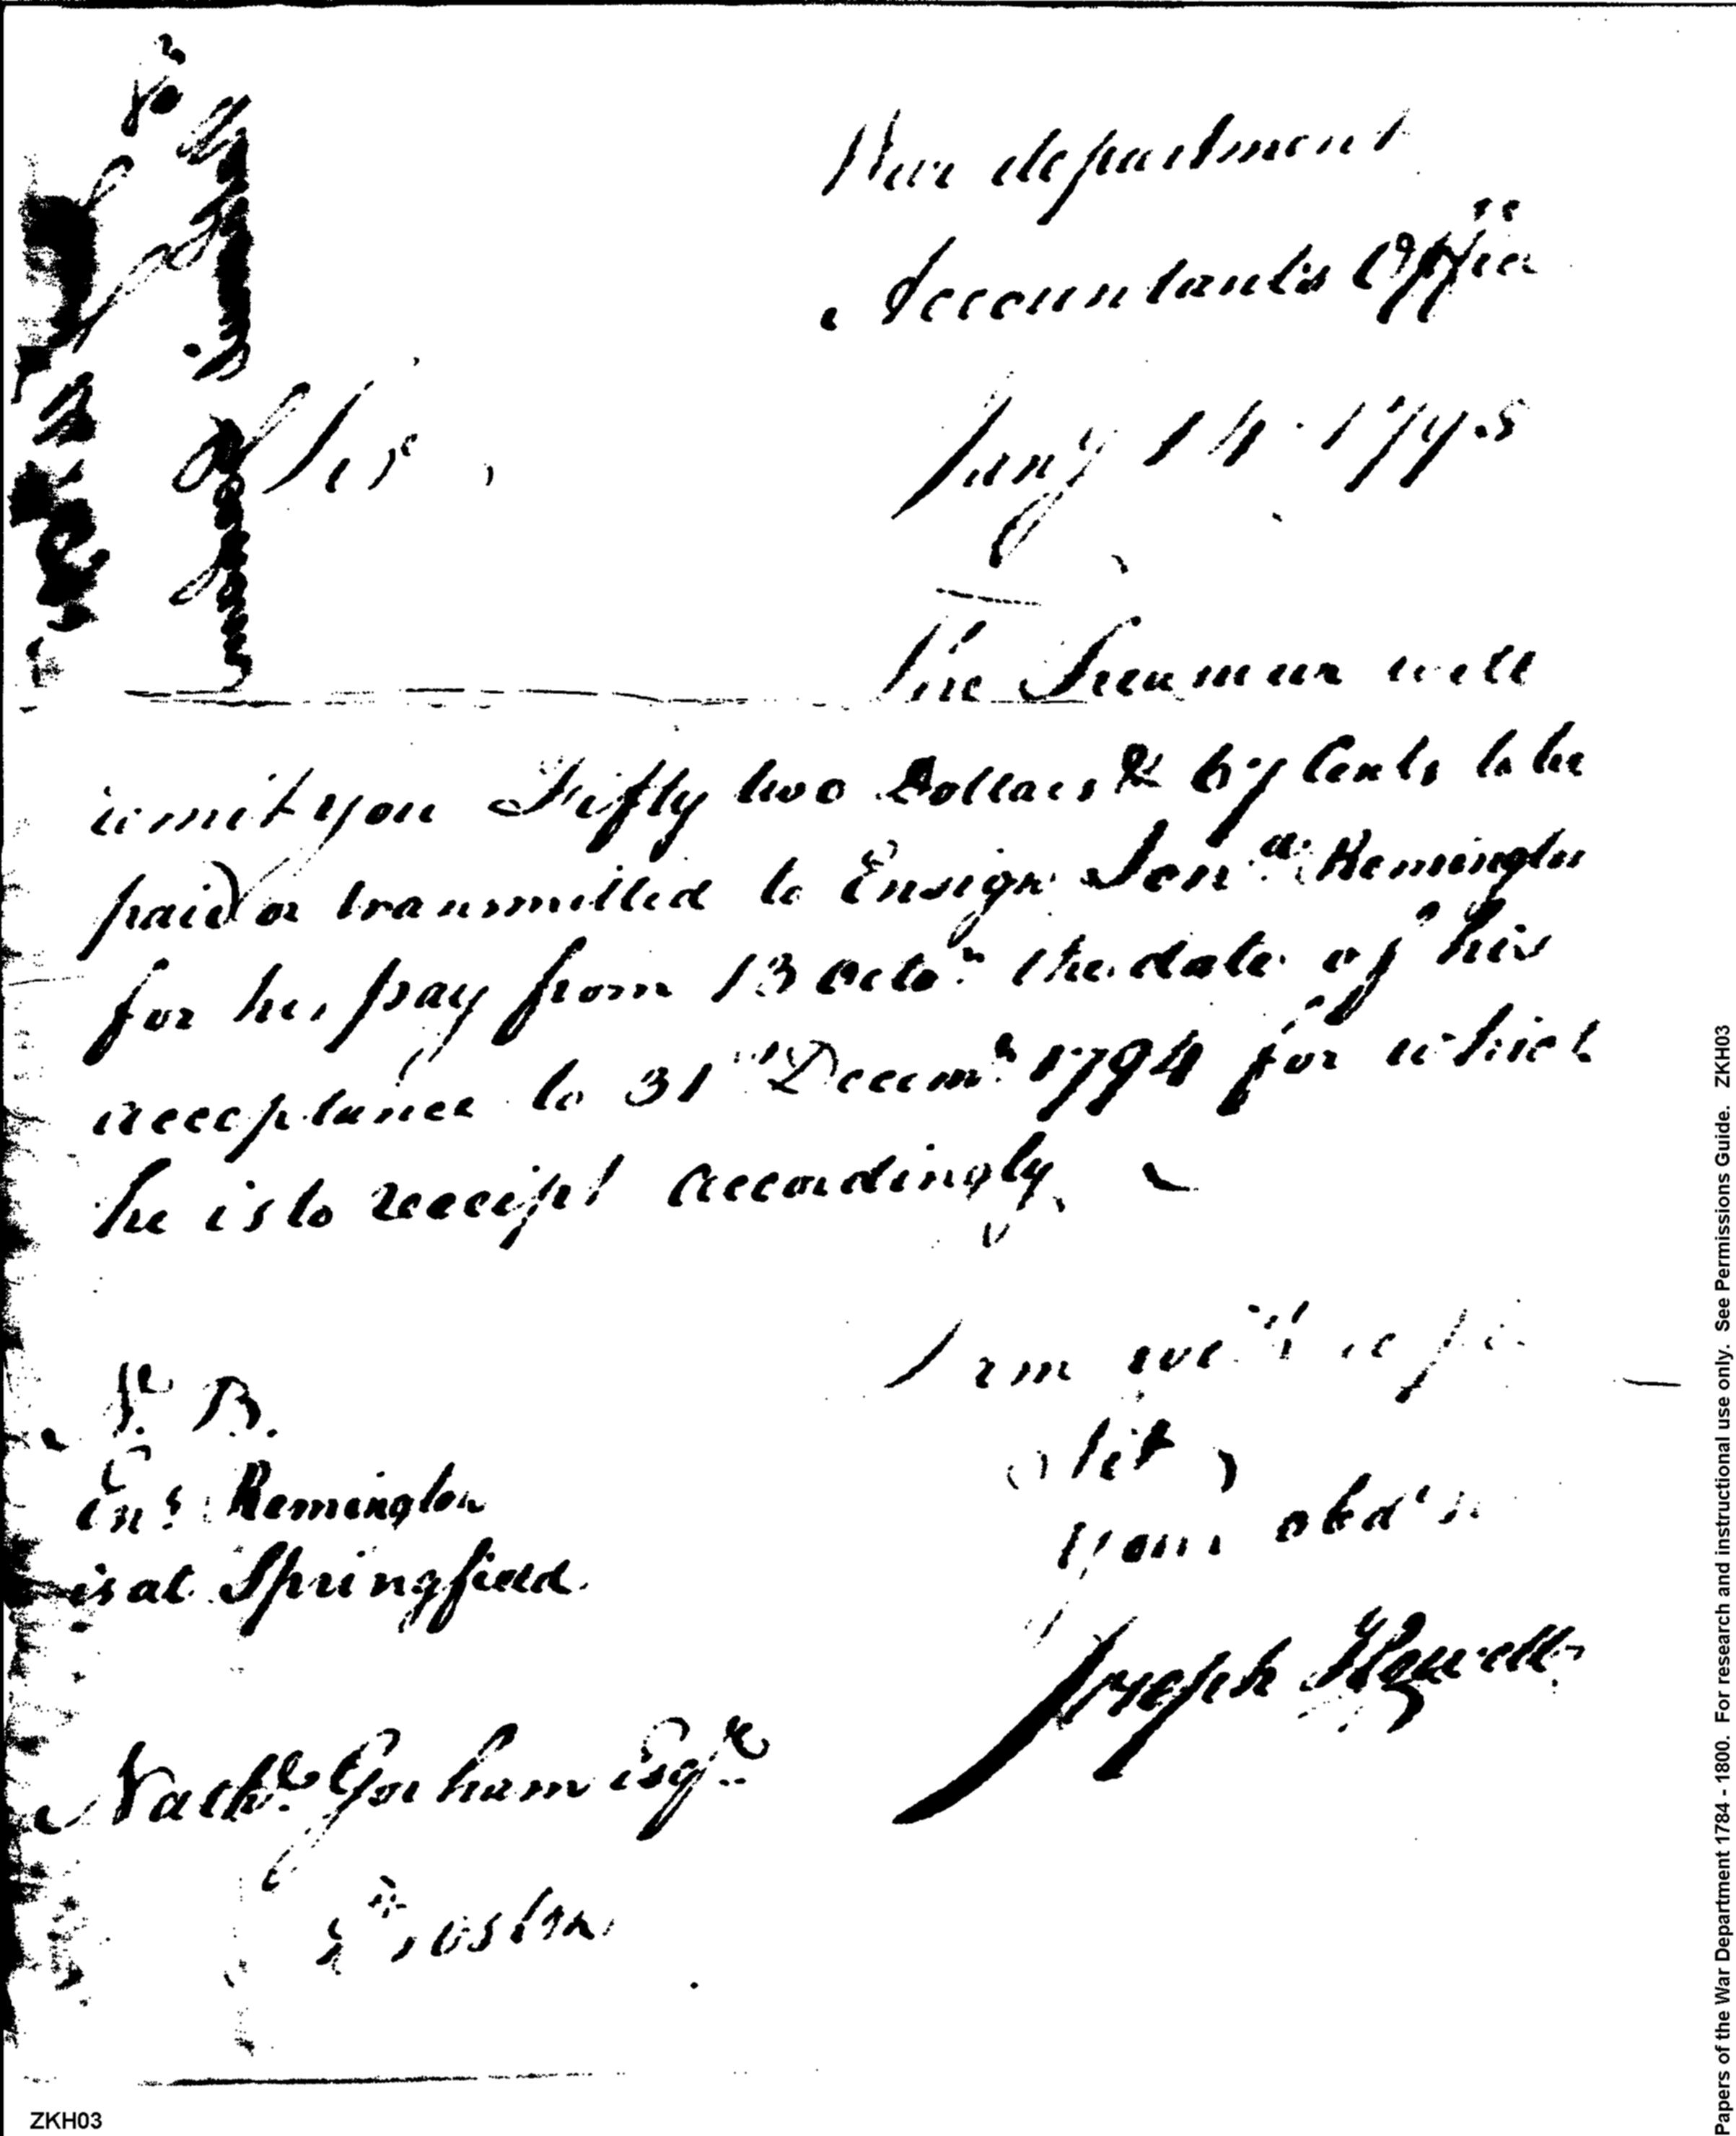 War department
Accountants Office
Jany 14. 1795
Sir,
The Treasurer will
remit you Fifty two Dollars & 67 Cents to be
paid or transmitted to Ensign Jona. Remington
for his pay from 13 Octor. the date of his
acceptance to 31st Decemr. 1794 for which
he is to receipt accordingly
I am with
Sir
your obdt
Joseph Howell
N. B.
Ens. Remington
is at Springfield.
Nathl. Gorham Esqr.
Boston
ZKH03
Papers of the War Department 1784 - 1800. For research and instructional use only. See Permissions Guide. ZKH03